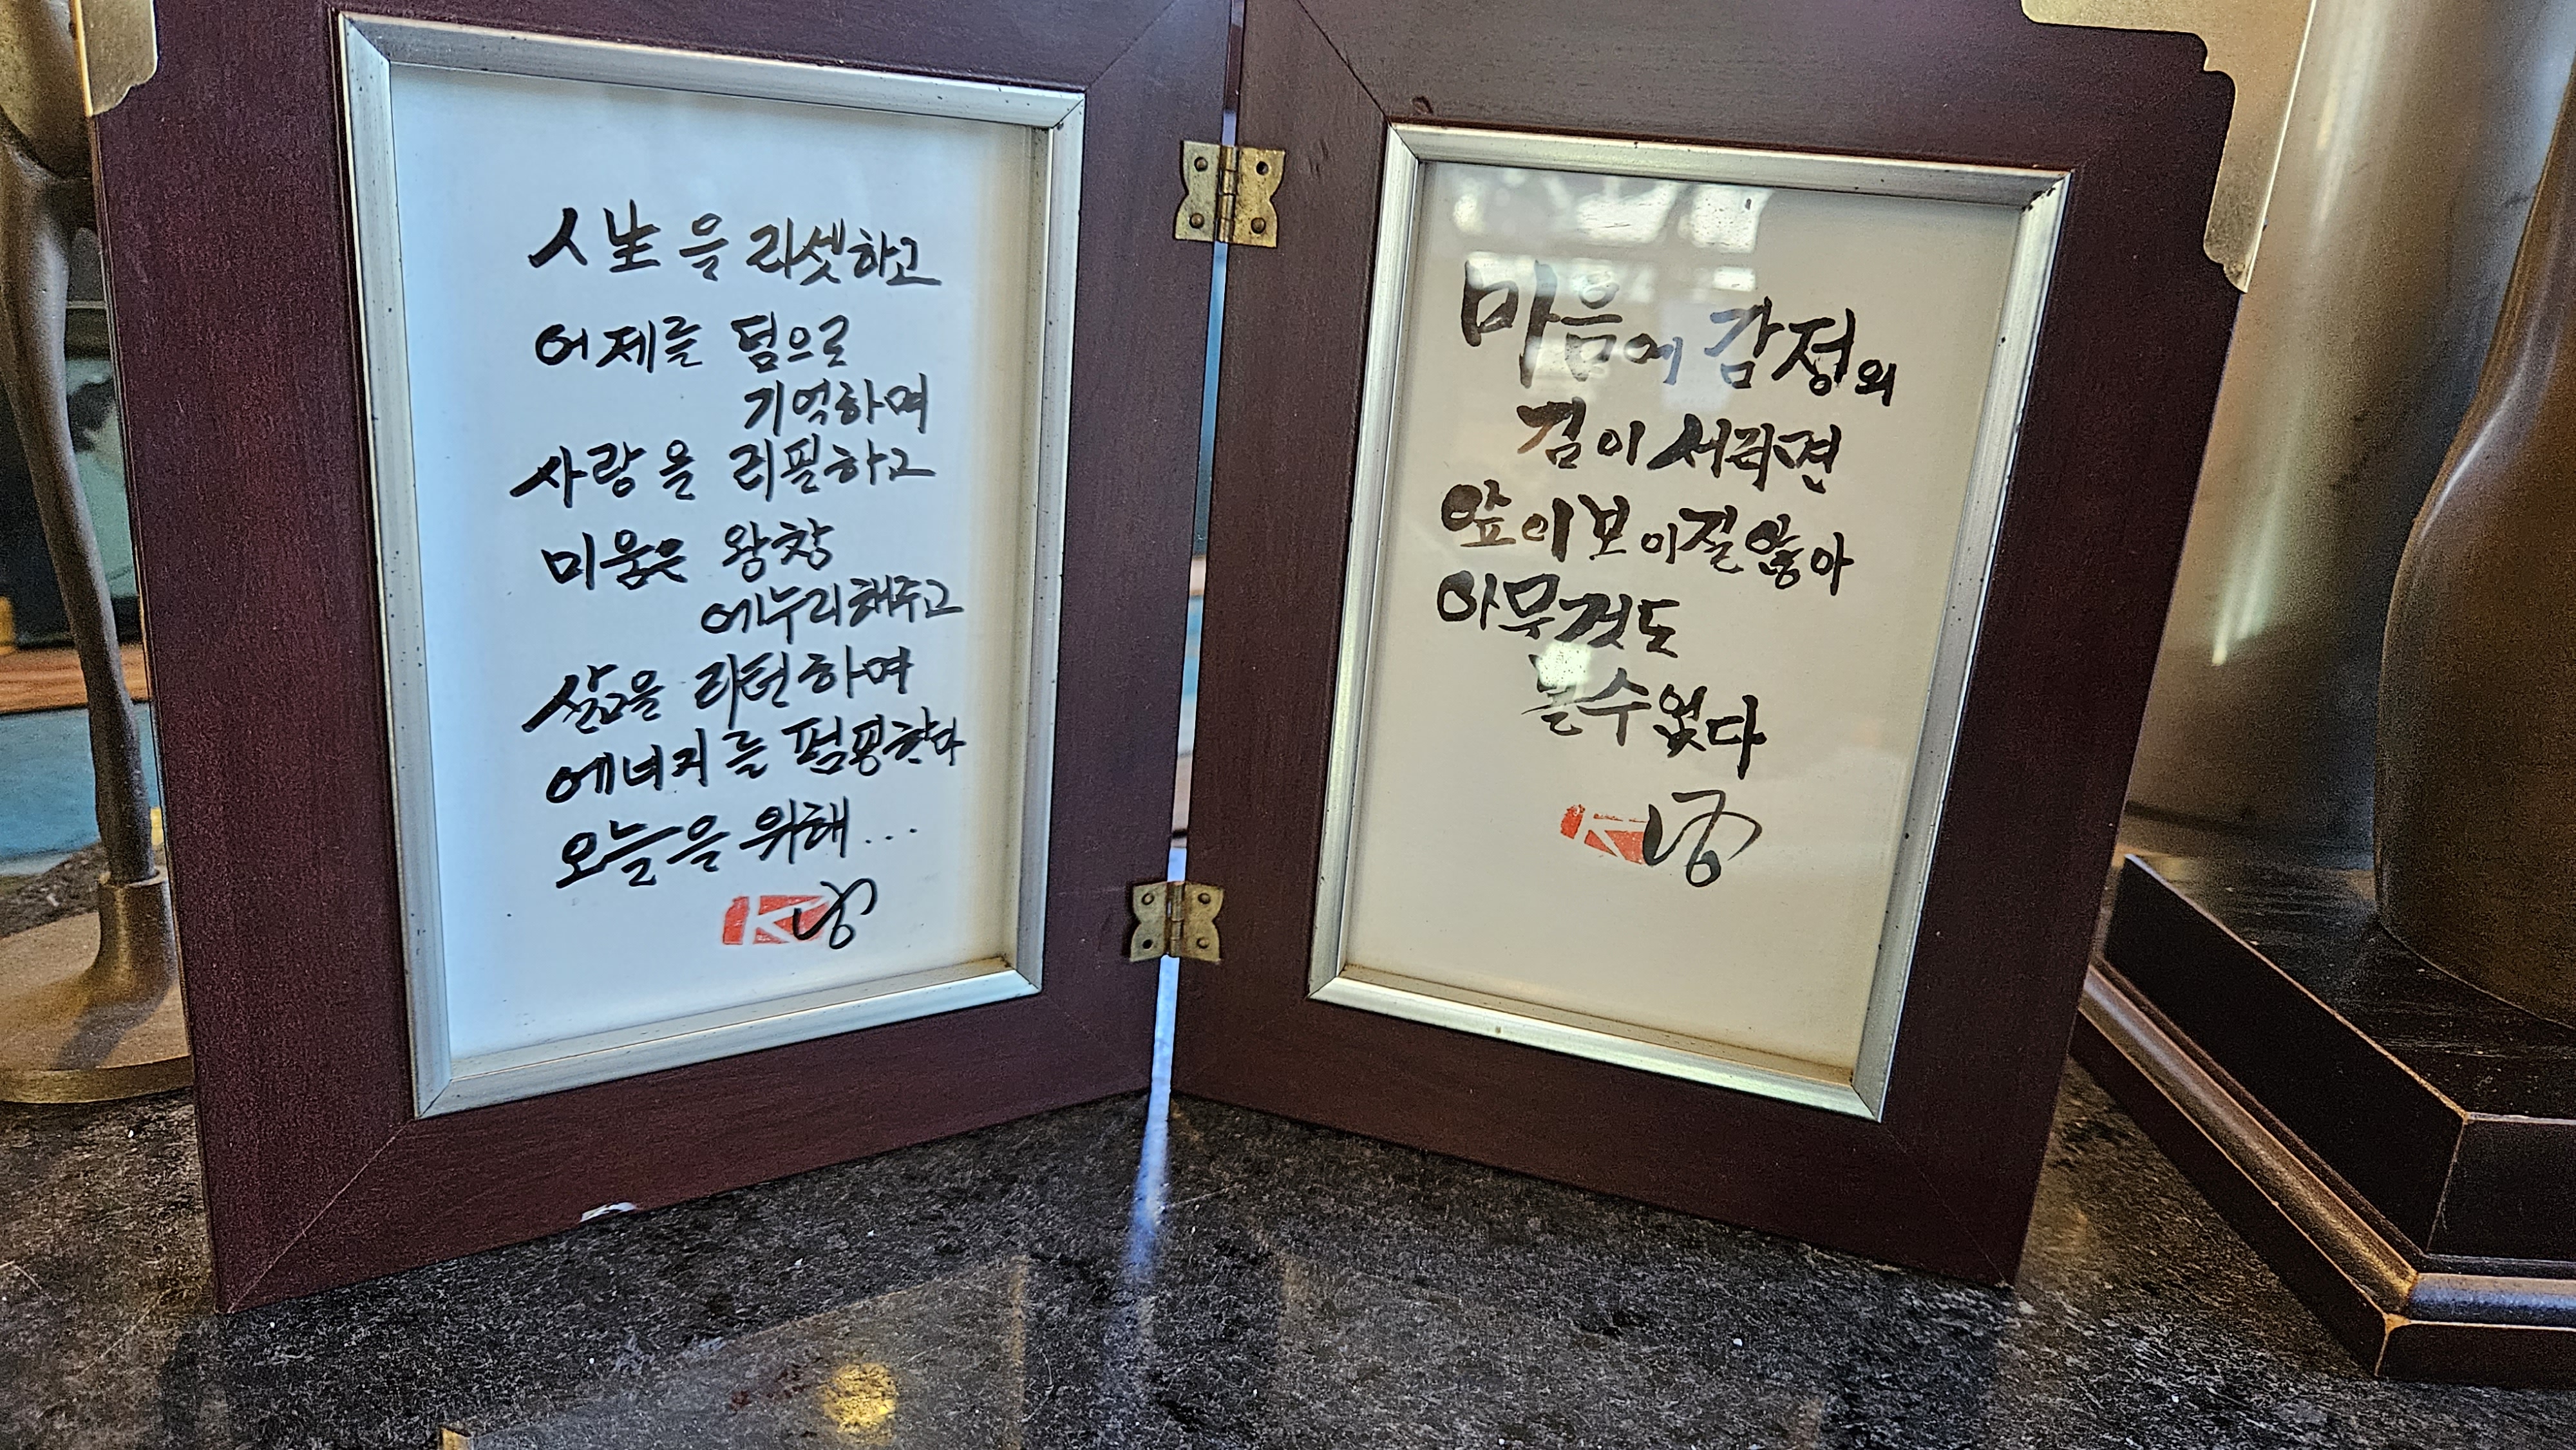 人生을 리셋하고
어제를 덤으로
기억하며
사랑을 리필하고
미움은 왕창
에누리해주고
삶을 리턴하며
에너지를 펌핑한다
오늘을 위해...
K
마음에 감정의
김이 서리면
앞이 보이질 않아
아무것도
볼수 없다
K